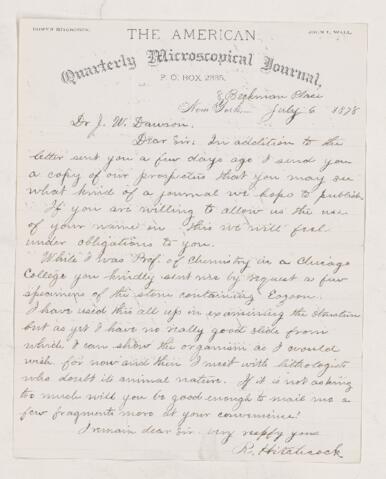 ROMYN HITCHCOCK.
JOHN L. WALL.
THE AMERICAN
Quarterly Microscopical Journal,
P. O. BOX 2335,
8 Beekman Place
New York, July 6 1878
Dr J. W. Dawson.
Dear Sir: In addition to the
letter sent you a few days ago I send you
a copy of our prospectus that you may see
what kind of a journal we hope to publish.
If you are willing to allow us the use
of your name in this we will feel
under obligations to you.
While I was Prof. of Chemistry in a Chicago
College you kindly sent me by request a few
specimens of the stone containing Eozoon.
I have used this all up in examining the structure
but as yet I have no really good slide from
which I can show the organism as I would
wish for now and then I meet with lithologists
who doubt its animal nature. If it is not asking
too much will you be good enough to mail me a
few fragments more at your convenience?
I remain dear Sir very respfy yours
R. Hitchcock